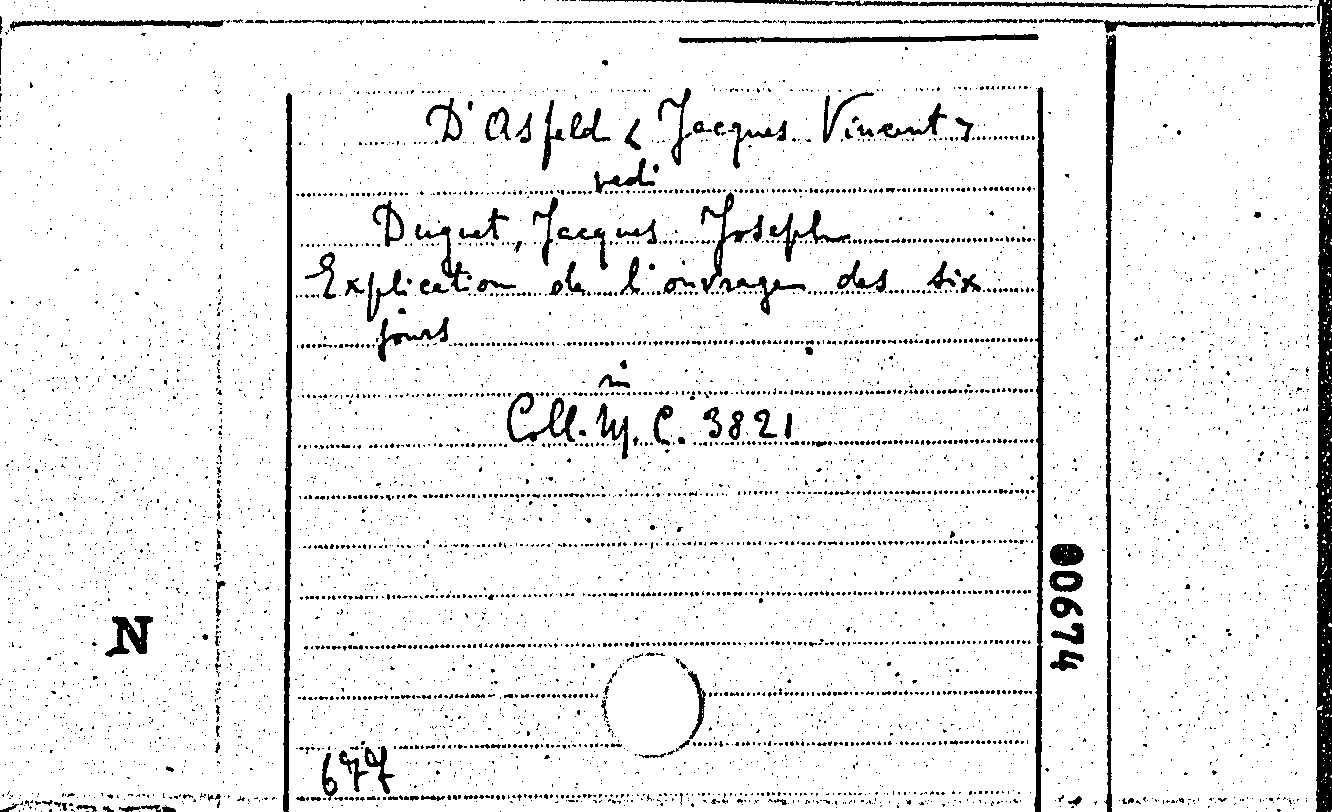 D'Asfeld < Jacques Vincent >
vedi
Duguet, Jacques Joseph
Explication de l'ouvrage des six
jours
in
Coll. M. C. 3821
00674
N
677